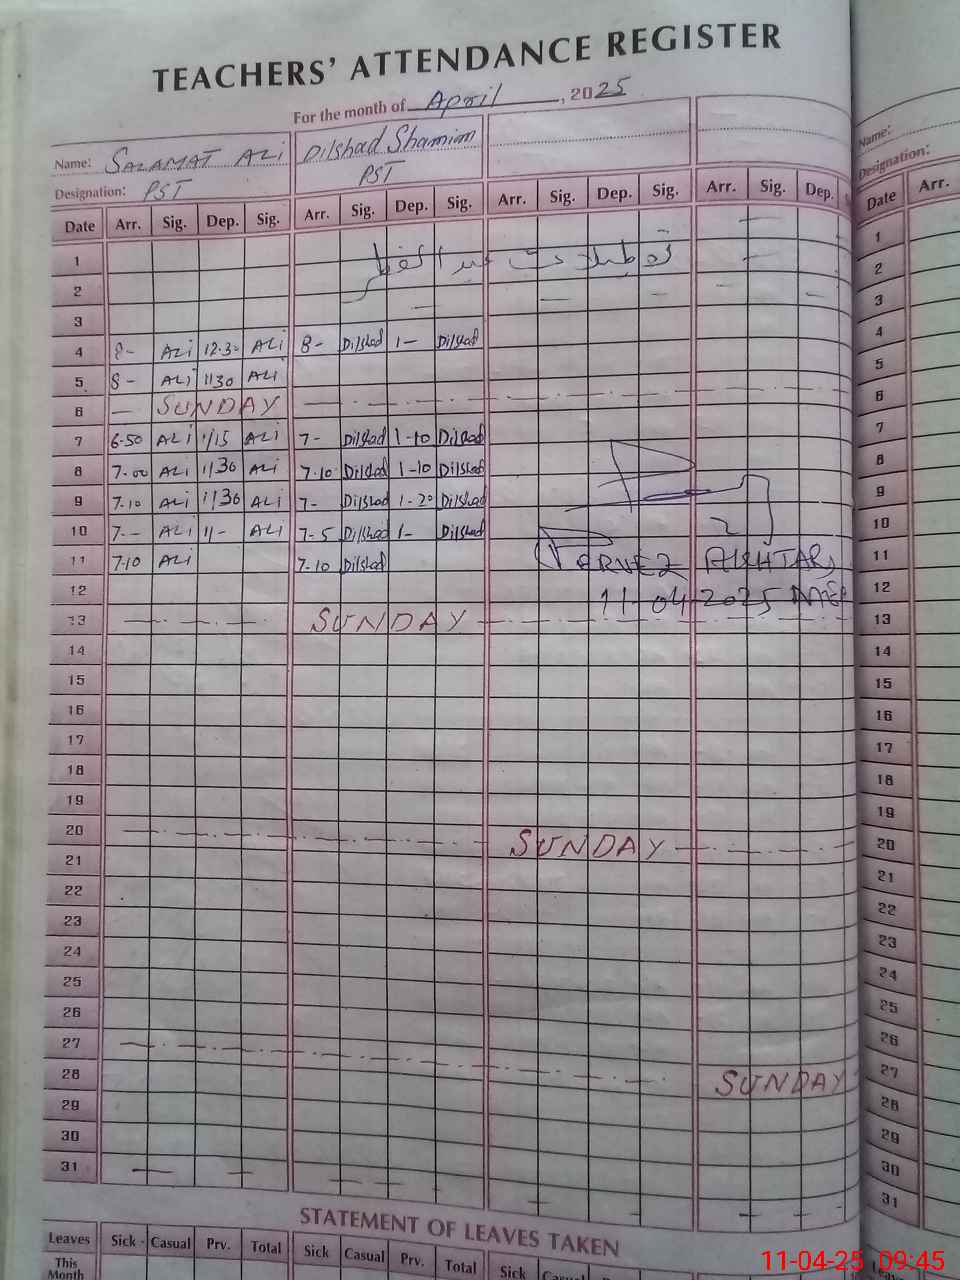 TEACHERS' ATTENDANCE REGISTER
For the month of April, 2025
Name: SALAMAT ALI Dilshad Shamim Name:
Designation: PST PST Designation:
Date Arr. Sig. Dep. Sig. Arr. Sig. Dep. Sig. Arr. Sig. Dep. Sig. Arr. Sig. Dep. Date Arr.
1 1
2 2
3 3
4 8- ALi 12.30 ALi 8- Dilshad 1- Dilshad 4
5 8- ALi 1130 ALi 5
6 - SUNDAY 6
7 6.50 ALi 1/15 ALi 7- Dilshad 1-10 Dilshad 7
8 7.00 ALi 1130 ALi 7.10 Dilshad 1-10 Dilshad 8
9 7.10 ALi 1130 ALi 7- Dilshad 1-20 Dilshad 9
10 7-- ALi 11- ALi 7-5 Dilshad 1- Dilshad 10
11 7.10 ALi 7-10 Dilshad PERVEZ AKHTAR, 11
12 11-04-2025 12
13 SUNDAY 13
14 14
15 15
16 16
17 17
18 18
19 19
20 SUNDAY 20
21 21
22 22
23 23
24 24
25 25
26 26
27 27
28 SUNDAY 28
29 29
30 30
31 31
STATEMENT OF LEAVES TAKEN
Leaves Sick Casual Prv. Total Sick Casual Prv. Total Sick Casual
This Month
11-04-25 09:45